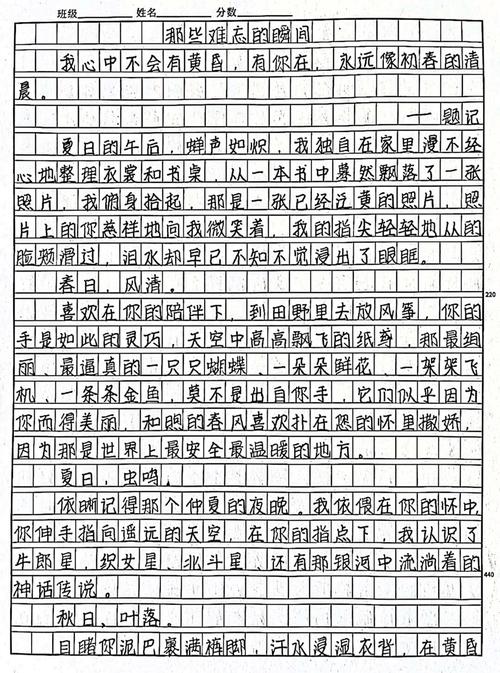 班级 姓名 分数
那些难忘的瞬间
我心中不会有黄昏，有你在，永远像初春的清
晨。
——题记
夏日的午后，蝉声如炽，我独自在家里漫不经
心地整理衣裳和书桌，从一本书中蓦然飘落了一张
照片，我俯身拾起，那是一张已经泛黄的照片，照
片上的你慈祥地向我微笑着，我的指尖轻轻地从的
脸颊滑过，泪水却早已不知不觉浸出了眼眶。
春日，风清。
喜欢在你的陪伴下，到田野里去放风筝，你的
手是如此的灵巧，天空中高高飘飞的纸鸢，那最绚
丽、最逼真的一只只蝴蝶、一朵朵鲜花、一架架飞
机、一条条金鱼，莫不是出自你手，它们似乎因为
你而得美丽，和煦的春风喜欢扑在您的怀里撒娇，
因为那是世界上最安全最温暖的地方。
220
夏日，虫鸣。
依晰记得那个仲夏的夜晚。我依偎在你的怀中，
你伸手指向遥远的天空，在你的指点下，我认识了
牛郎星，织女星、北斗星、还有那银河中流淌着的
神话传说。
440
秋日、叶落。
目睹你泥巴裹满裤脚，汗水浸湿衣背，在黄昏